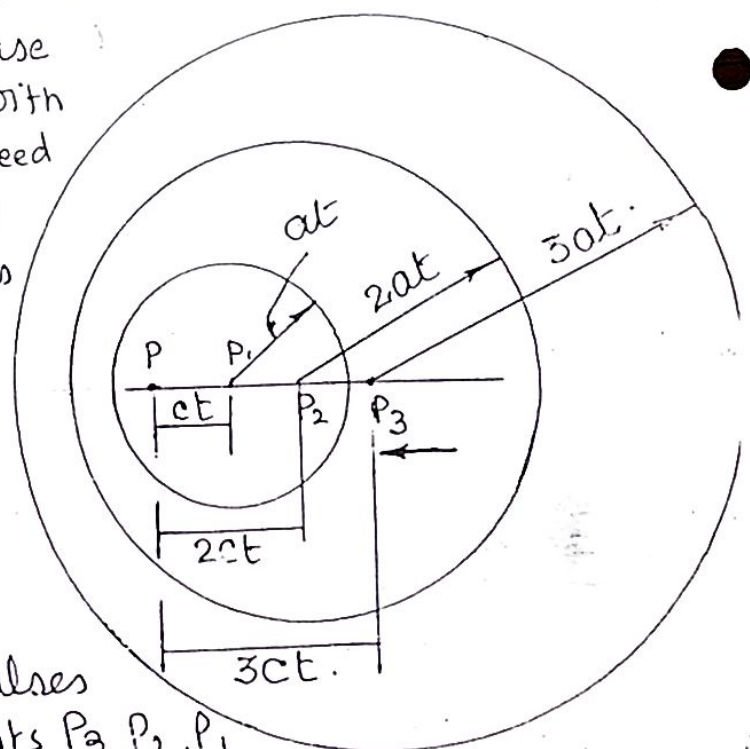 use
with
eed
s
at
2at
3at.
P
P₁
ct
P₂
P₃
2ct
3ct.
ulses
ts P₃, P₂, P₁